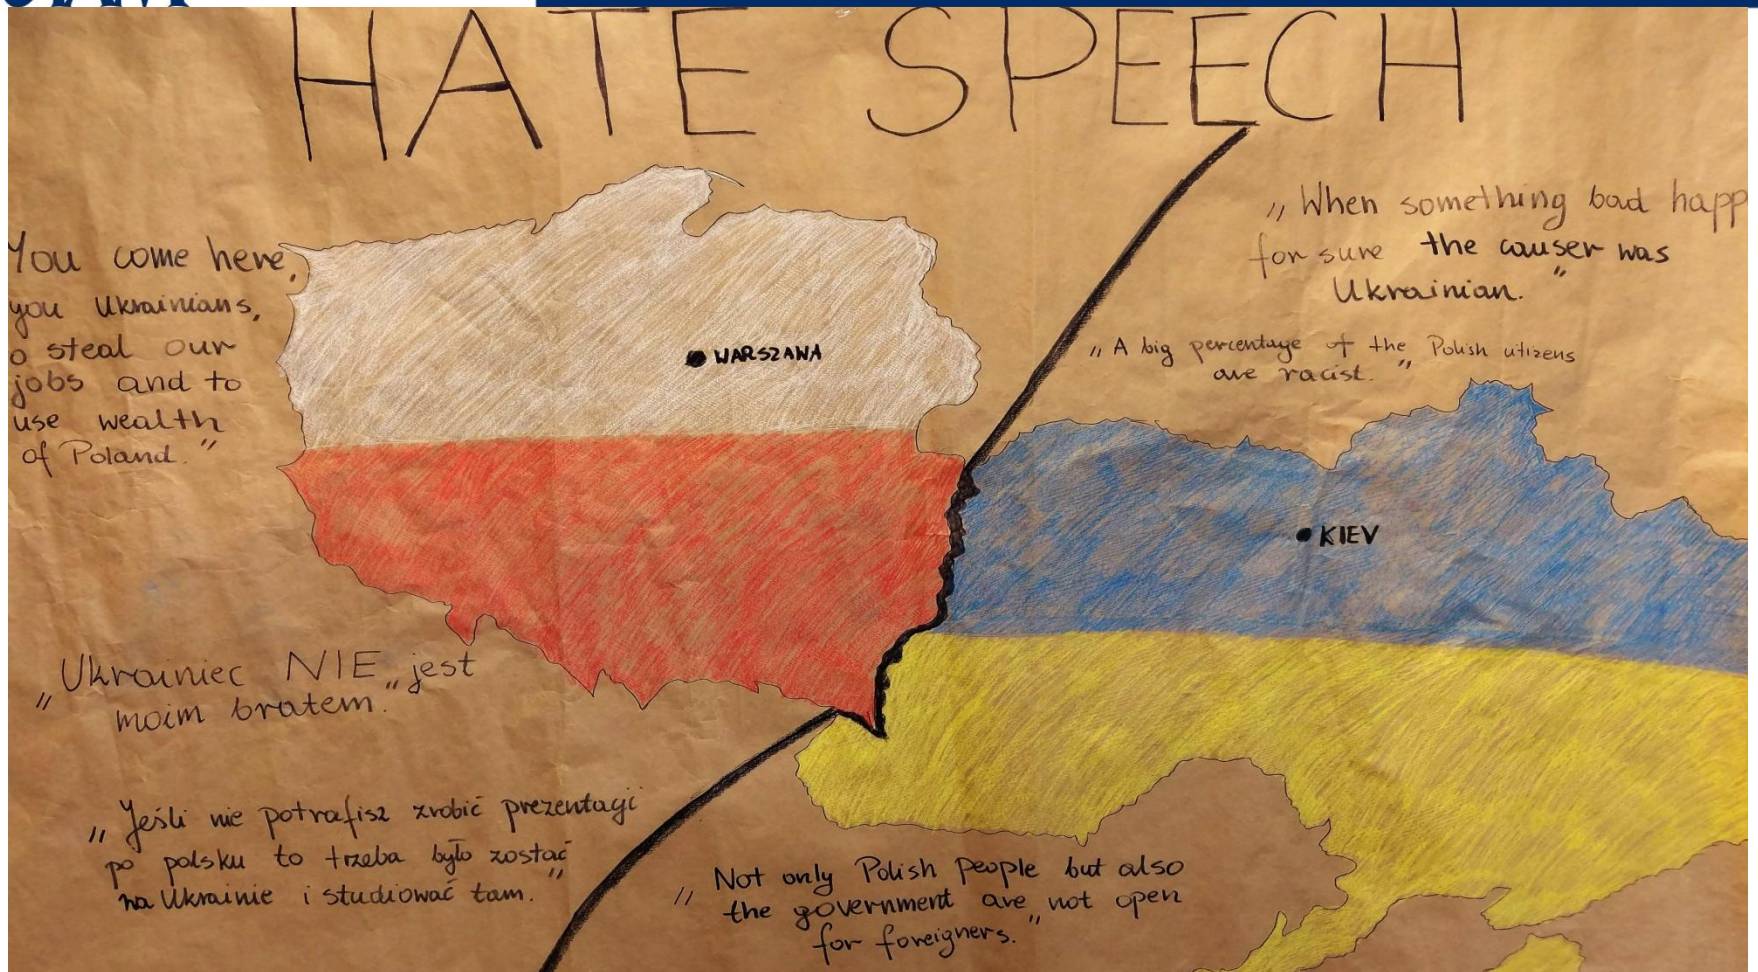 HATE SPEECH
You come here,
you Ukrainians,
o steal our
jobs and to
use wealth
of Poland."
„When something bad happ
for sure the causer was
Ukrainian."
„A big percentage of the Polish citizens
are racist."
WARSZAWA
KIEV
„Ukrainiec NIE jest
moim bratem."
„Jeśli nie potrafisz zrobić prezentacji
po polsku to trzeba było zostać
na Ukrainie i studiować tam."
„Not only Polish people but also
the government are not open
for foreigners."